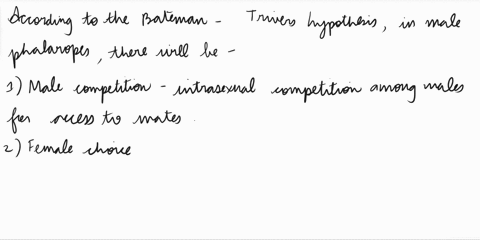 According to the Bateman - Trivers hypothesis, in male
phalaropes, there will be -
1) Male competition - intrasexual competition among males
for access to mates.
2) Female choice